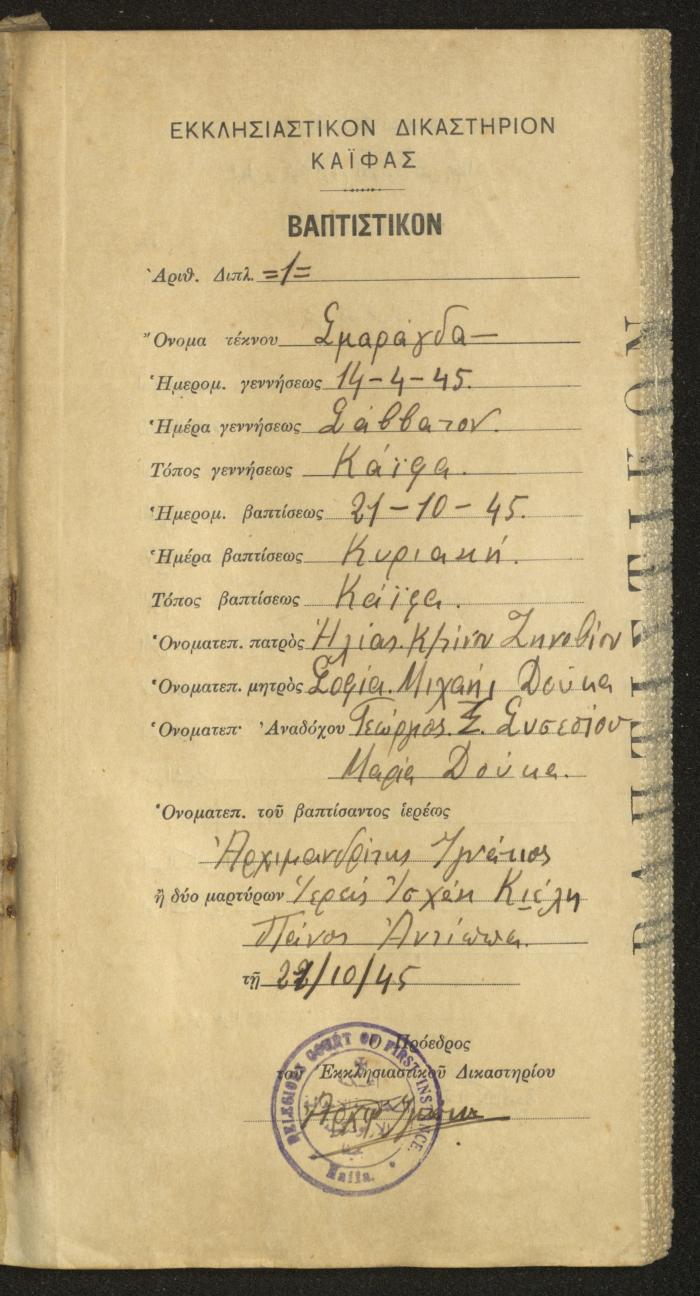 ΕΚΚΛΗΣΙΑΣΤΙΚΟΝ ΔΙΚΑΣΤΗΡΙΟΝ
ΚΑΪΦΑΣ
ΒΑΠΤΙΣΤΙΚΟΝ
Ἀριθ. Διπλ. =1=
Ὄνομα τέκνου Σμαράγδα—
Ἡμερομ. γεννήσεως 14-4-45.
Ἡμέρα γεννήσεως Σάββατον.
Τόπος γεννήσεως Κάϊφα.
Ἡμερομ. βαπτίσεως 21-10-45.
Ἡμέρα βαπτίσεως Κυριακή.
Τόπος βαπτίσεως Κάϊφα.
Ὀνοματεπ. πατρὸς Ἠλίας Ζηνοβίου
Ὀνοματεπ. μητρὸς Σοφία Μιχαὴλ Δούκα
Ὀνοματεπ· Ἀναδόχου Γεώργιος Σ. Συνεσίου
Μαρία Δούκα.
Ὀνοματεπ. τοῦ βαπτίσαντος ἱερέως
Ἀρχιμανδρίτης Ἰγνάτιος
ἢ δύο μαρτύρων Ἱερεὺς Ἰσχὰκ
Πάνος Ἀντίππα.
τῇ 22/10/45
Ὁ Πρόεδρος
τοῦ Ἐκκλησιαστικοῦ Δικαστηρίου
RELEGIOUS COURT OF FIRST INSTANCE.
Haifa.
ΒΑΠΤΙΣΤΙΚΟΝ